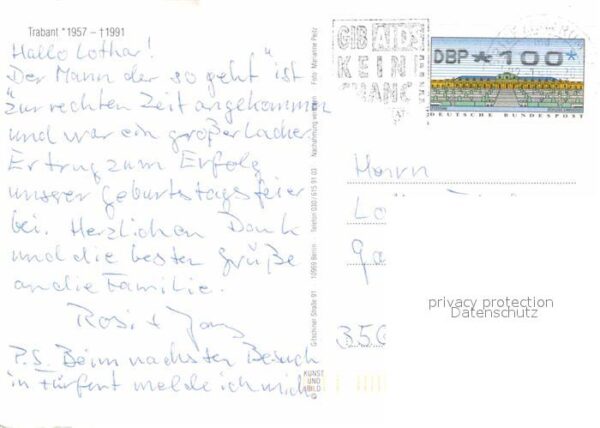 Trabant *1957 – †1991
Hallo Lothar!
"Der Mann der so geht" ist
zur rechten Zeit angekommen
und war ein großer Lacher.
Er trug zum Erfolg
unserer Geburtstagsfeier
bei. Herzlichen Dank
und die besten Grüße
an die Familie.
Rosi +
P.S. Beim nächsten Besuch
in melde ich mich
Foto: Marianne Peitz
Nachahmung
Telefon 030 / 615 91 03
10969 Berlin
Gitschiner Straße 91
KUNST
UND
BILD
GIB AIDS
KEINE
CHANC
DBP *100*
DEUTSCHE BUNDESPOST
Herrn
Lo
Ga
350
privacy protection
Datenschutz